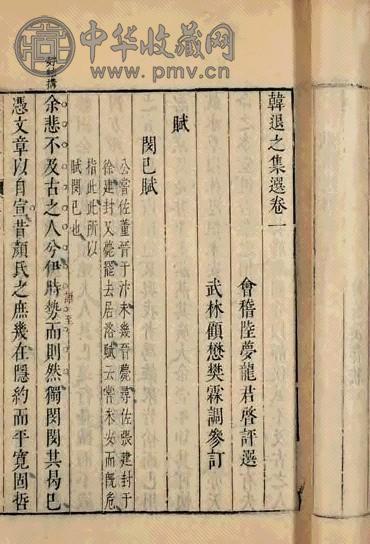 中华收藏网
www.pmv.cn
韓退之集選卷一
會稽陸夢龍君啓評選
武林傎懋樊霖調參訂
賦
閔已賦
公嘗佐董晉于汴未幾晉薨尋佐張建封于
徐建封又薨罷去居洛賦云常未安而旣危
指此此所以
賦閔已也
余悲不及古之人兮伊時勢而則然獨閔閔其曷已
憑文章以自宣昔顔氏之庶幾在隱約而平寛固哲